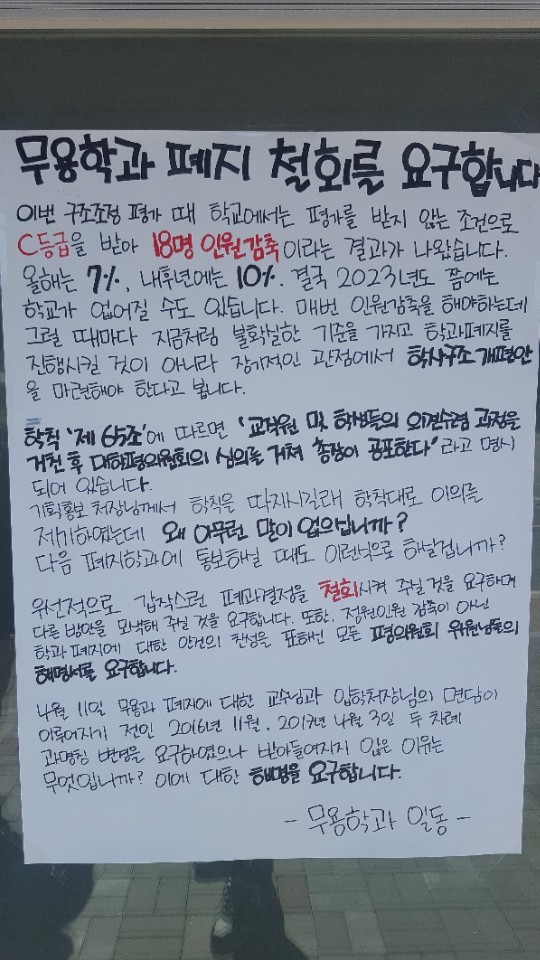 무용학과 폐지 철회를 요구합니다
이번 구조조정 평가 때 학교에서는 평가를 받지 않는 조건으로
C등급을 받아 18명 인원감축이라는 결과가 나왔습니다.
올해는 7%, 내후년에는 10%. 결국 2023년도 쯤에는
학교가 없어질 수도 있습니다. 매번 인원감축을 해야하는데
그럴 때마다 지금처럼 불확실한 기준을 가지고 학과폐지를
진행시킬 것이 아니라 장기적인 관점에서 학사구조 개편안
을 마련해야 한다고 봅니다.
학칙 '제 65조'에 따르면 '교직원 및 학생들의 의견수렴 과정을
거친 후 대학평의원회의 심의를 거쳐 총장이 공포한다" 라고 명시
되어 있습니다.
기획홍보 처장님께서 학칙을 따지시길래 학칙대로 이의를
제기하였는데 왜 아무런 말이 없으십니까?
다음 폐지학과에 통보하실 때도 이런식으로 하실겁니까?
우선적으로 갑작스런 폐과결정을 철회시켜 주실 것을 요구하며
다른 방안을 모색해 주실 것을 요구합니다. 또한, 정원인원 감축이 아닌
학과 폐지에 대한 안건의 찬성을 표하신 모든 평의원회 위원님들의
해명서를 요구합니다.
4월 11일 무용과 폐지에 대한 교수님과 입학처장님의 면담이
이루어지기 전인 2016년 11월, 2017년 4월 3일 두 차례
과명칭 변경을 요구하였으나 받아들여지지 않은 이유는
무엇입니까? 이에 대한 해명을 요구합니다.
- 무용학과 일동 -